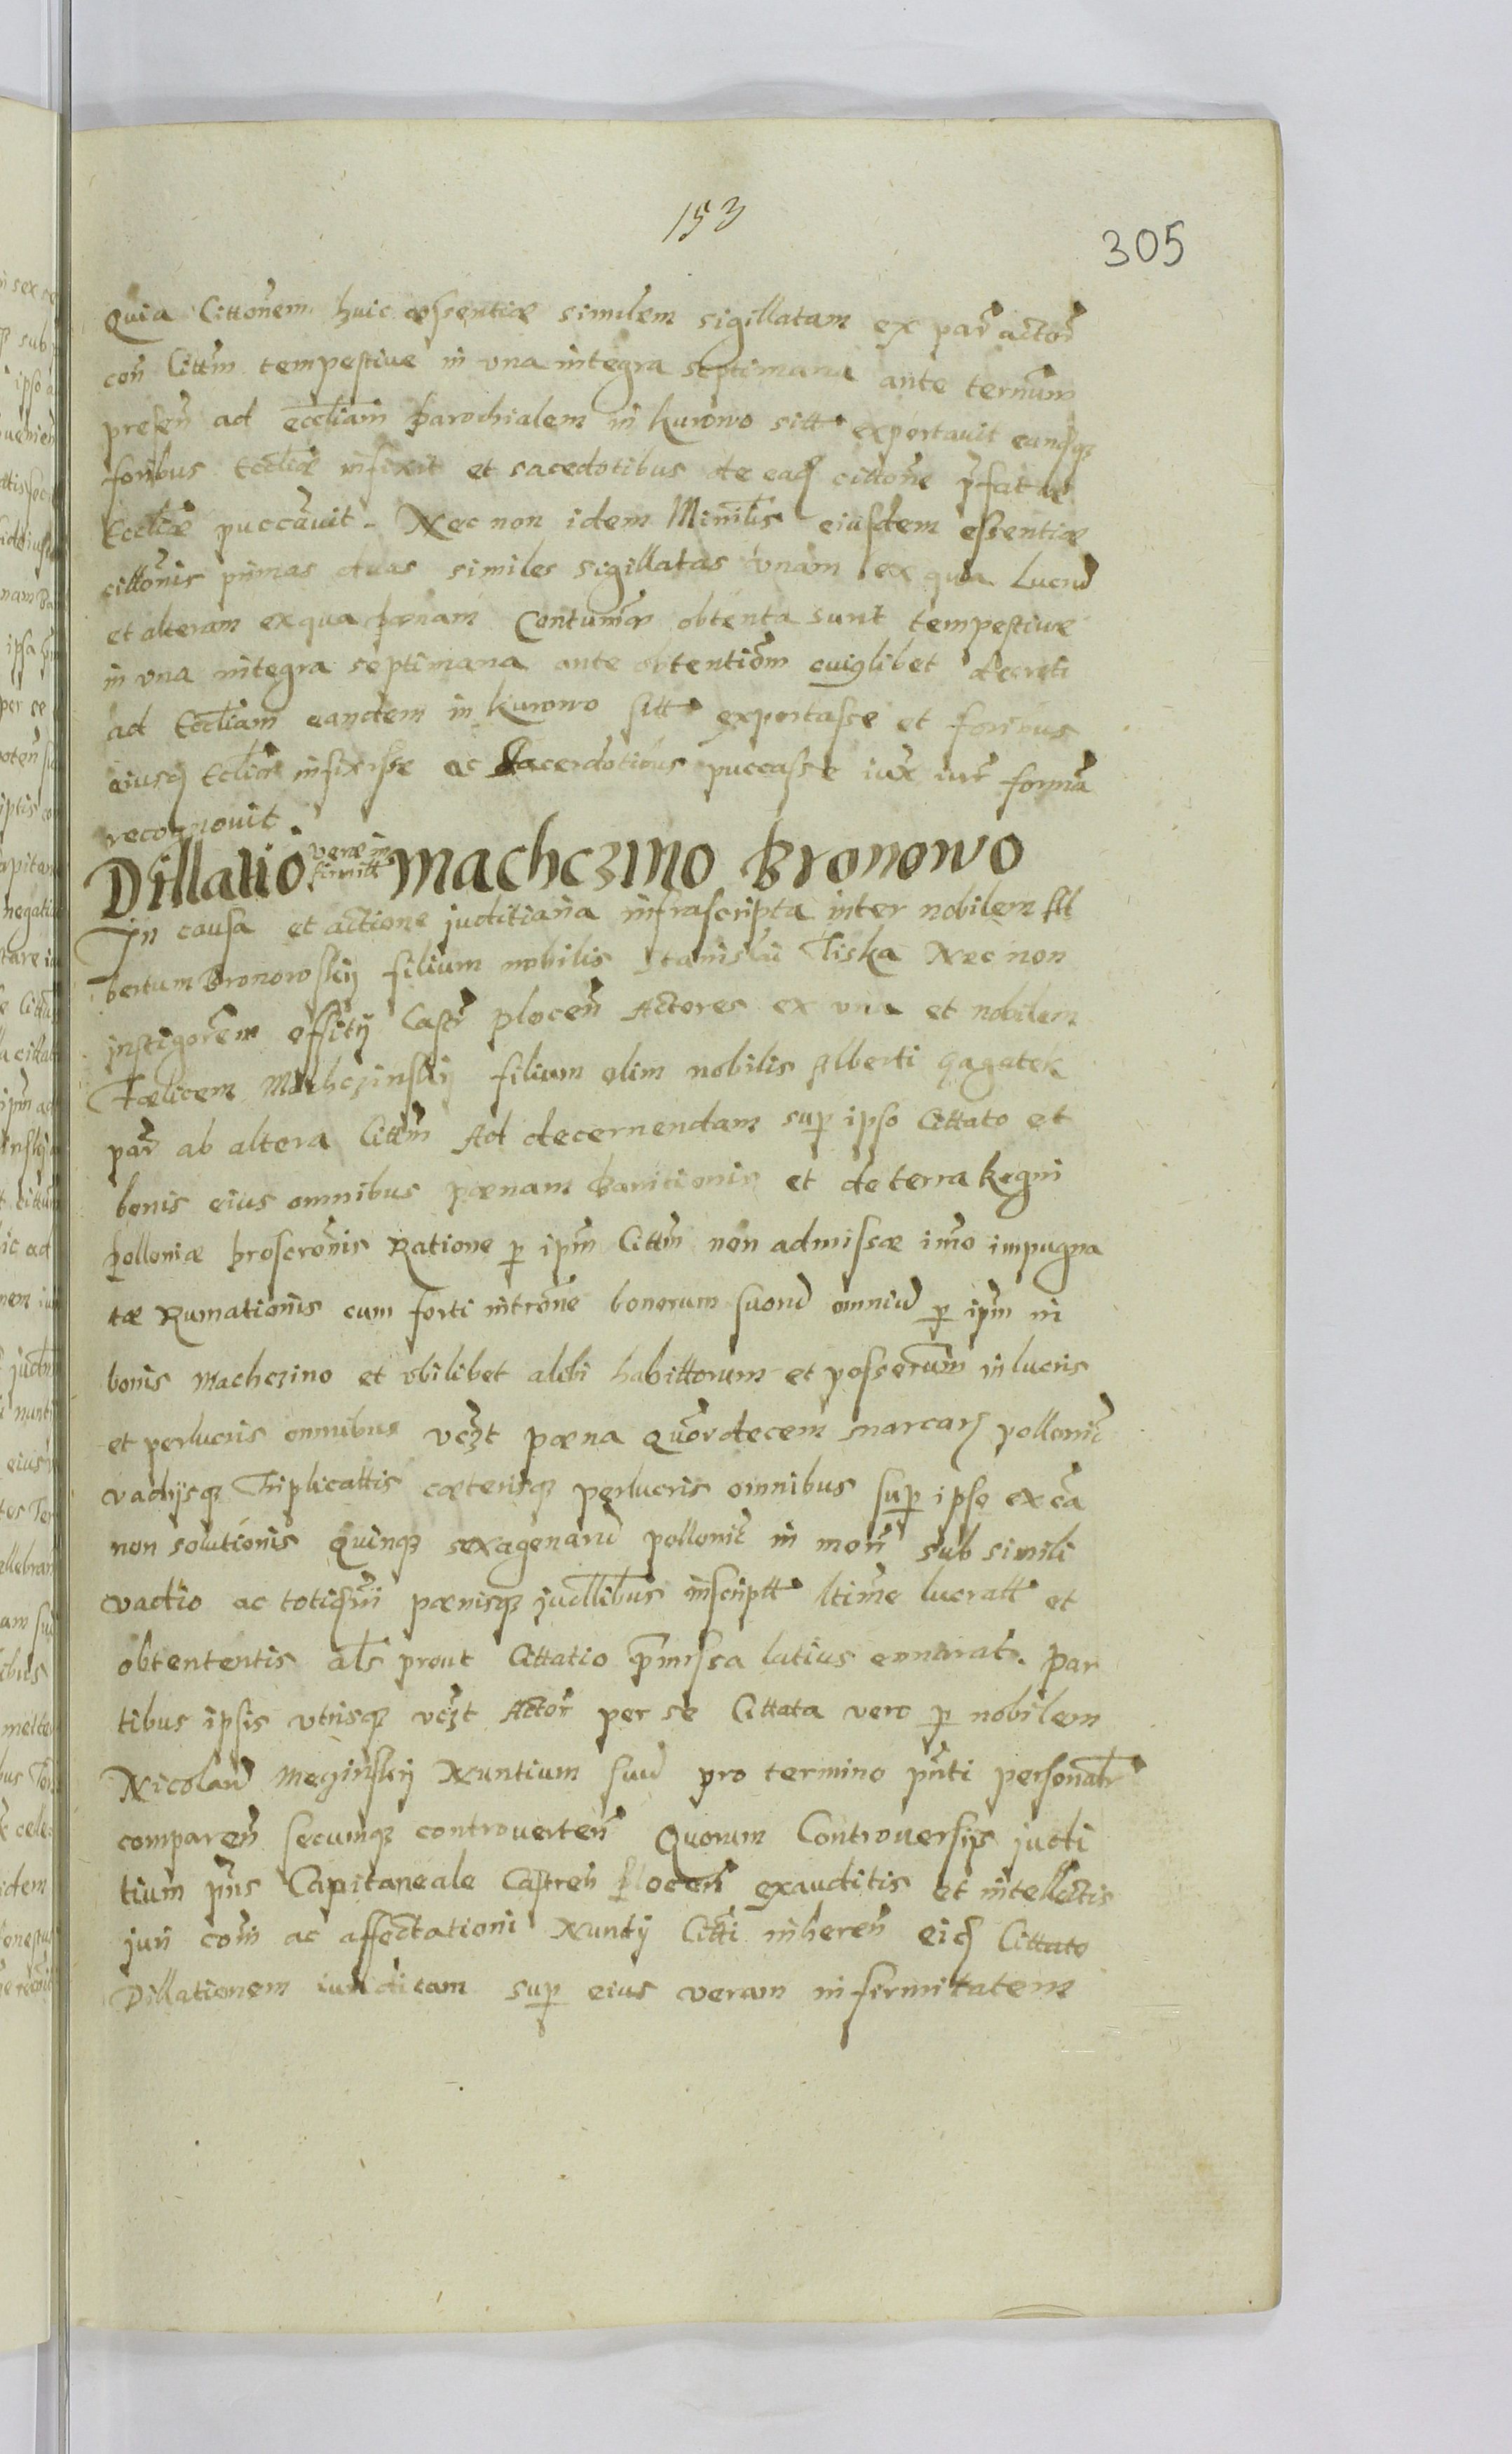 153
305
Quia Cittonem huic essentiæ similem sigillatam ex par actor
con Cittm tempestiue in vna integra septimana ante ternum
presen ad eccliam parochialem in Kurowo sitt exportauit eandq
foribus Eccliæ infixit et sacedotibus de ead cittone pfatæ
Eccliæ puccauit. Nec non idem Minilis eiusdem essentiæ
cittonis primas duas similes sigillatas vnam ex qua Lucrũ
et alteram ex qua pænam Contumæ obtenta sunt tempestiue
in vna integra septimana ante obtentiom cuiglibet decreti
ad Eccliam eandem in Kurowo sitt exportasse et foribus
eiusd Ecliæ infixisse ac Sacerdotibus puccasse iux iur formã
recognouit
Dillatio veræ in firmitt Machczino Bronowo
In causa et actione juditiaria infrascripta inter nobilem Al
bertum Bronowskij filium nobilis Stanislai Tiska Nec non
instigorem offitij Castr plocen Actores ex vna et nobilem
Fœlicem Machczinskij filium olim nobilis Alberti Gagatek
par ab altera Cittm Ad decernendam sup ipso Cittato et
bonis eius omnibus pœnam Banitionis et de terra Regni
Polloniæ proscronis Ratione p ipm Cittm non admissæ imo impugna
tæ Rumationis cum forti introne bonorum suorũ omniũ p ipm in
bonis Machczino et vbilibet alibi habittorum et posserum in lucris
et perlucris omnibus vczt pœna Quordecem marcar pollonic
vadijsq Triplicattis cæterisq perlucris omnibus sup ipso ex ca
non solutionis Quinq sexagenarũ pollonic in mon sub simili
vadio ac totiqm pœnisq judlibus inscriptt ltime lucratt et
obtententis als prout Cittatio pmissa latius ennarat. Par
tibus ipsis vtrisq vczt Actor per se Cittata vero p nobilem
Nicolaũ Meginskij Nuntium suũ pro termino pnti personalr
comparen secumq controuerten Quorum Controuersijs judi
tium pns Capitaneale Castren Plocen exauditis et intellectis
juri com ac affectationi Nuntij Citti inheren eid Cittato
Dillationem iuridicam sup eius veram infirmitatem